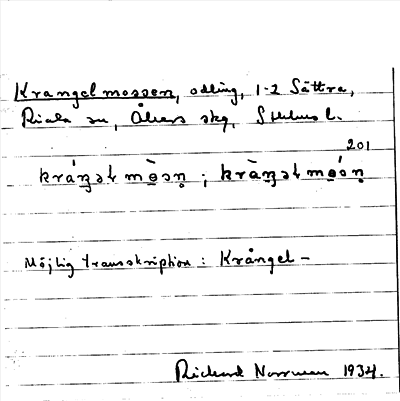 Krangelmossen, odling, 1-2 Sättra,
Riala sn, Åkers skg, Sthlms l.
201
kráŋəl mòsn̥ ; kràŋəl mósn̥
Möjlig transskription : Krångel -
Rickard Norrman 1934.